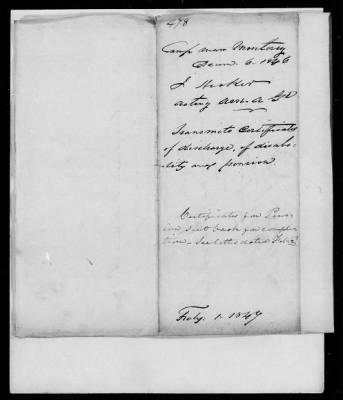 478
Camp near Monterey
Decem. 6. 1846
J Hooker
acting asst. a Gl
Transmits Certificates
of discharge, of disabi-
lity and pension
Certificates for Pen
sion sent back for comple
tion. See letter dated Feb.
Feby. 1. 1847